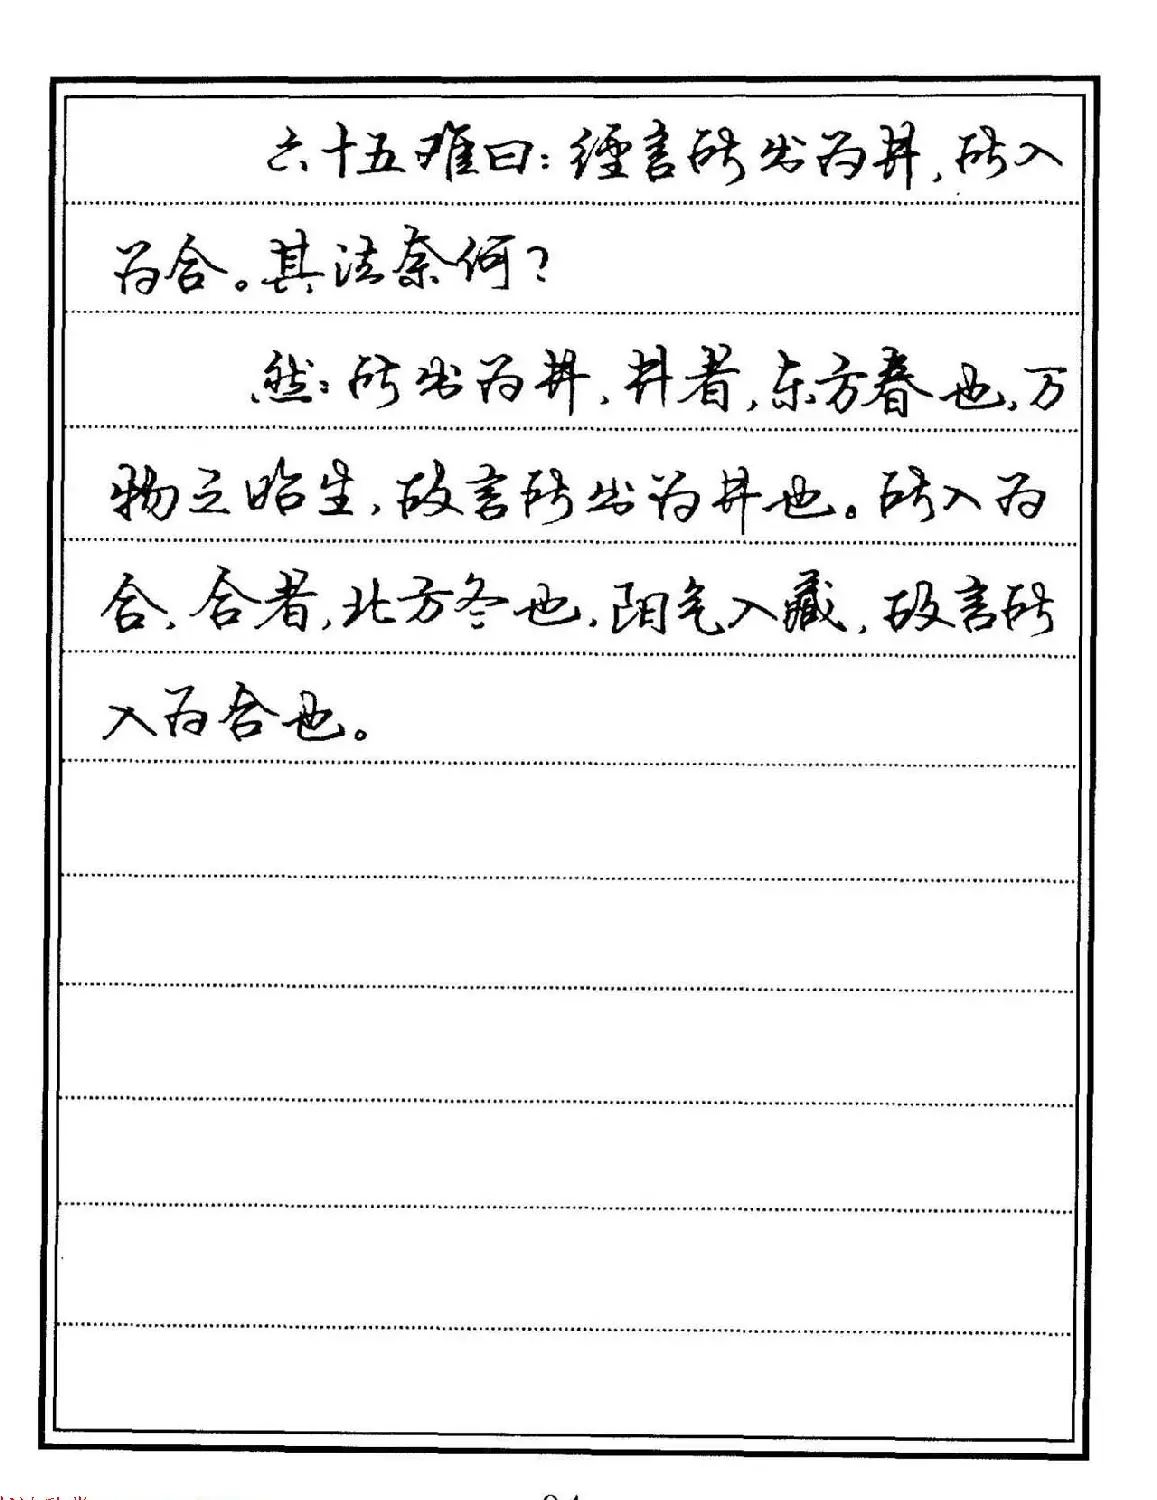 六十五难曰：經言所出为井，所入
为合。其法奈何？
然：所出为井，井者，东方春也，万
物之始生，故言所出为井也。所入为
合，合者，北方冬也，阳气入藏，故言所
入为合也。